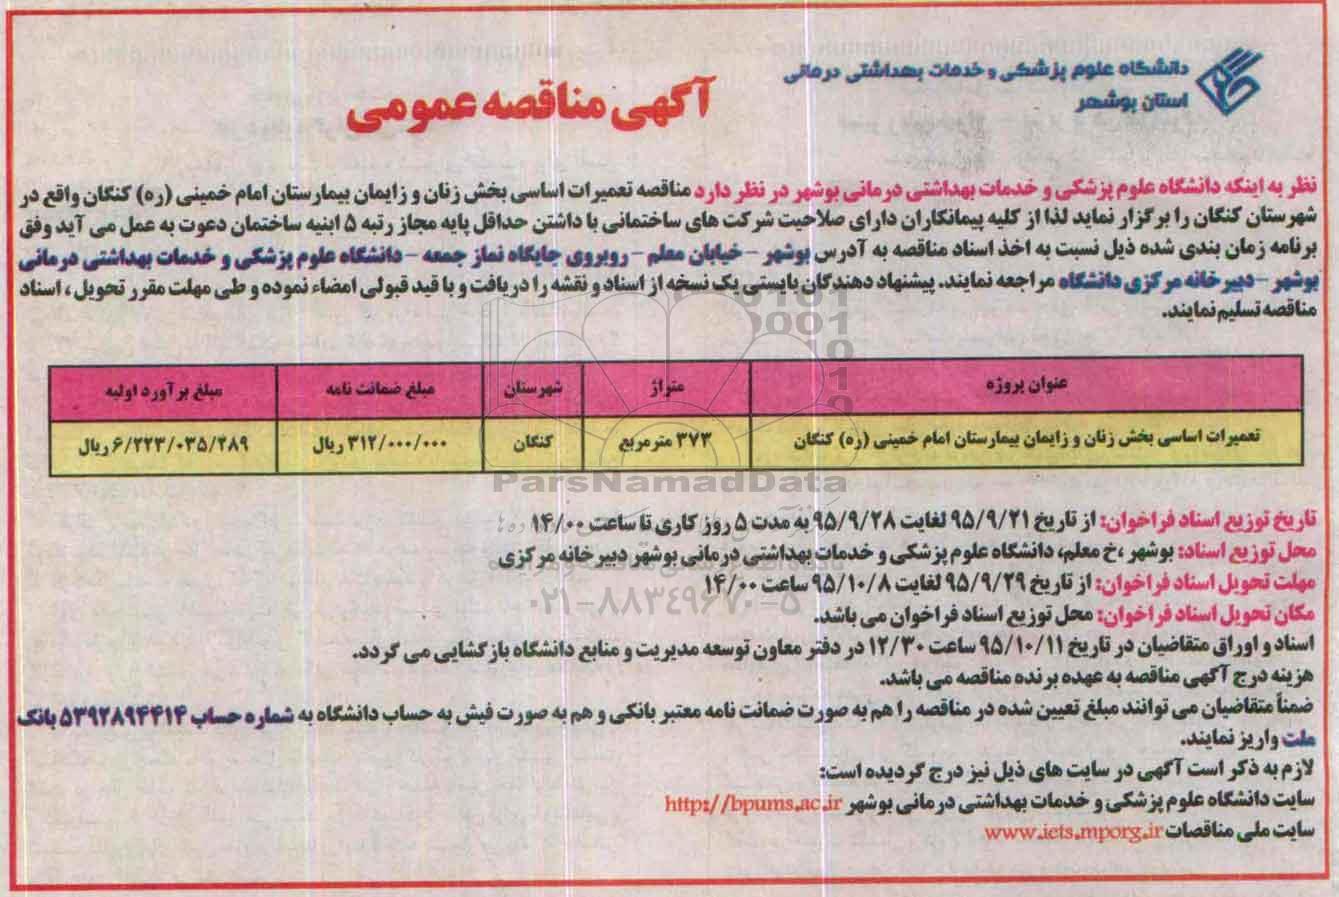 دانشگاه علوم پزشکی و خدمات بهداشتی درمانی
استان بوشهر
آگهی مناقصه عمومی
نظر به اینکه دانشگاه علوم پزشکی و خدمات بهداشتی درمانی بوشهر در نظر دارد مناقصه تعمیرات اساسی بخش زنان و زایمان بیمارستان امام خمینی (ره) کنگان واقع در
شهرستان کنگان را برگزار نماید لذا از کلیه پیمانکاران دارای صلاحیت شرکت های ساختمانی با داشتن حداقل پایه مجاز رتبه ۵ ابنیه ساختمان دعوت به عمل می آید وفق
برنامه زمان بندی شده ذیل نسبت به اخذ اسناد مناقصه به آدرس بوشهر - خیابان معلم - روبروی جایگاه نماز جمعه - دانشگاه علوم پزشکی و خدمات بهداشتی درمانی
بوشهر - دبیرخانه مرکزی دانشگاه مراجعه نمایند. پیشنهاد دهندگان بایستی یک نسخه از اسناد و نقشه را دریافت و با قید قبولی امضاء نموده و طی مهلت مقرر تحویل، اسناد
مناقصه تسلیم نمایند.
عنوان پروژه متراژ شهرستان مبلغ ضمانت نامه مبلغ برآورد اولیه
تعمیرات اساسی بخش زنان و زایمان بیمارستان امام خمینی (ره) کنگان ۳۷۳ مترمربع کنگان ۳۱۲/۰۰۰/۰۰۰ ریال ۶/۲۲۳/۰۳۵/۲۸۹ ریال
ParsNamadData
تاریخ توزیع اسناد فراخوان: از تاریخ ۹۵/۹/۲۱ لغایت ۹۵/۹/۲۸ به مدت ۵ روز کاری تا ساعت ۱۴/۰۰
محل توزیع اسناد: بوشهر ،خ معلم، دانشگاه علوم پزشکی و خدمات بهداشتی درمانی بوشهر دبیرخانه مرکزی
مهلت تحویل اسناد فراخوان: از تاریخ ۹۵/۹/۲۹ لغایت ۹۵/۱۰/۸ ساعت ۱۴/۰۰
۰۲۱-۸۸۳۴۹۶۷۰-۵
مکان تحویل اسناد فراخوان: محل توزیع اسناد فراخوان می باشد.
اسناد و اوراق متقاضیان در تاریخ ۹۵/۱۰/۱۱ ساعت ۱۲/۳۰ در دفتر معاون توسعه مدیریت و منابع دانشگاه بازگشایی می گردد.
هزینه درج آگهی مناقصه به عهده برنده مناقصه می باشد.
ضمناً متقاضیان می توانند مبلغ تعیین شده در مناقصه را هم به صورت ضمانت نامه معتبر بانکی و هم به صورت فیش به حساب دانشگاه به شماره حساب ۵۳۹۲۸۹۴۴۱۴ بانک
ملت واریز نمایند.
لازم به ذکر است آگهی در سایت های ذیل نیز درج گردیده است:
سایت دانشگاه علوم پزشکی و خدمات بهداشتی درمانی بوشهر http://bpums.ac.ir
سایت ملی مناقصات www.iets.mporg.ir